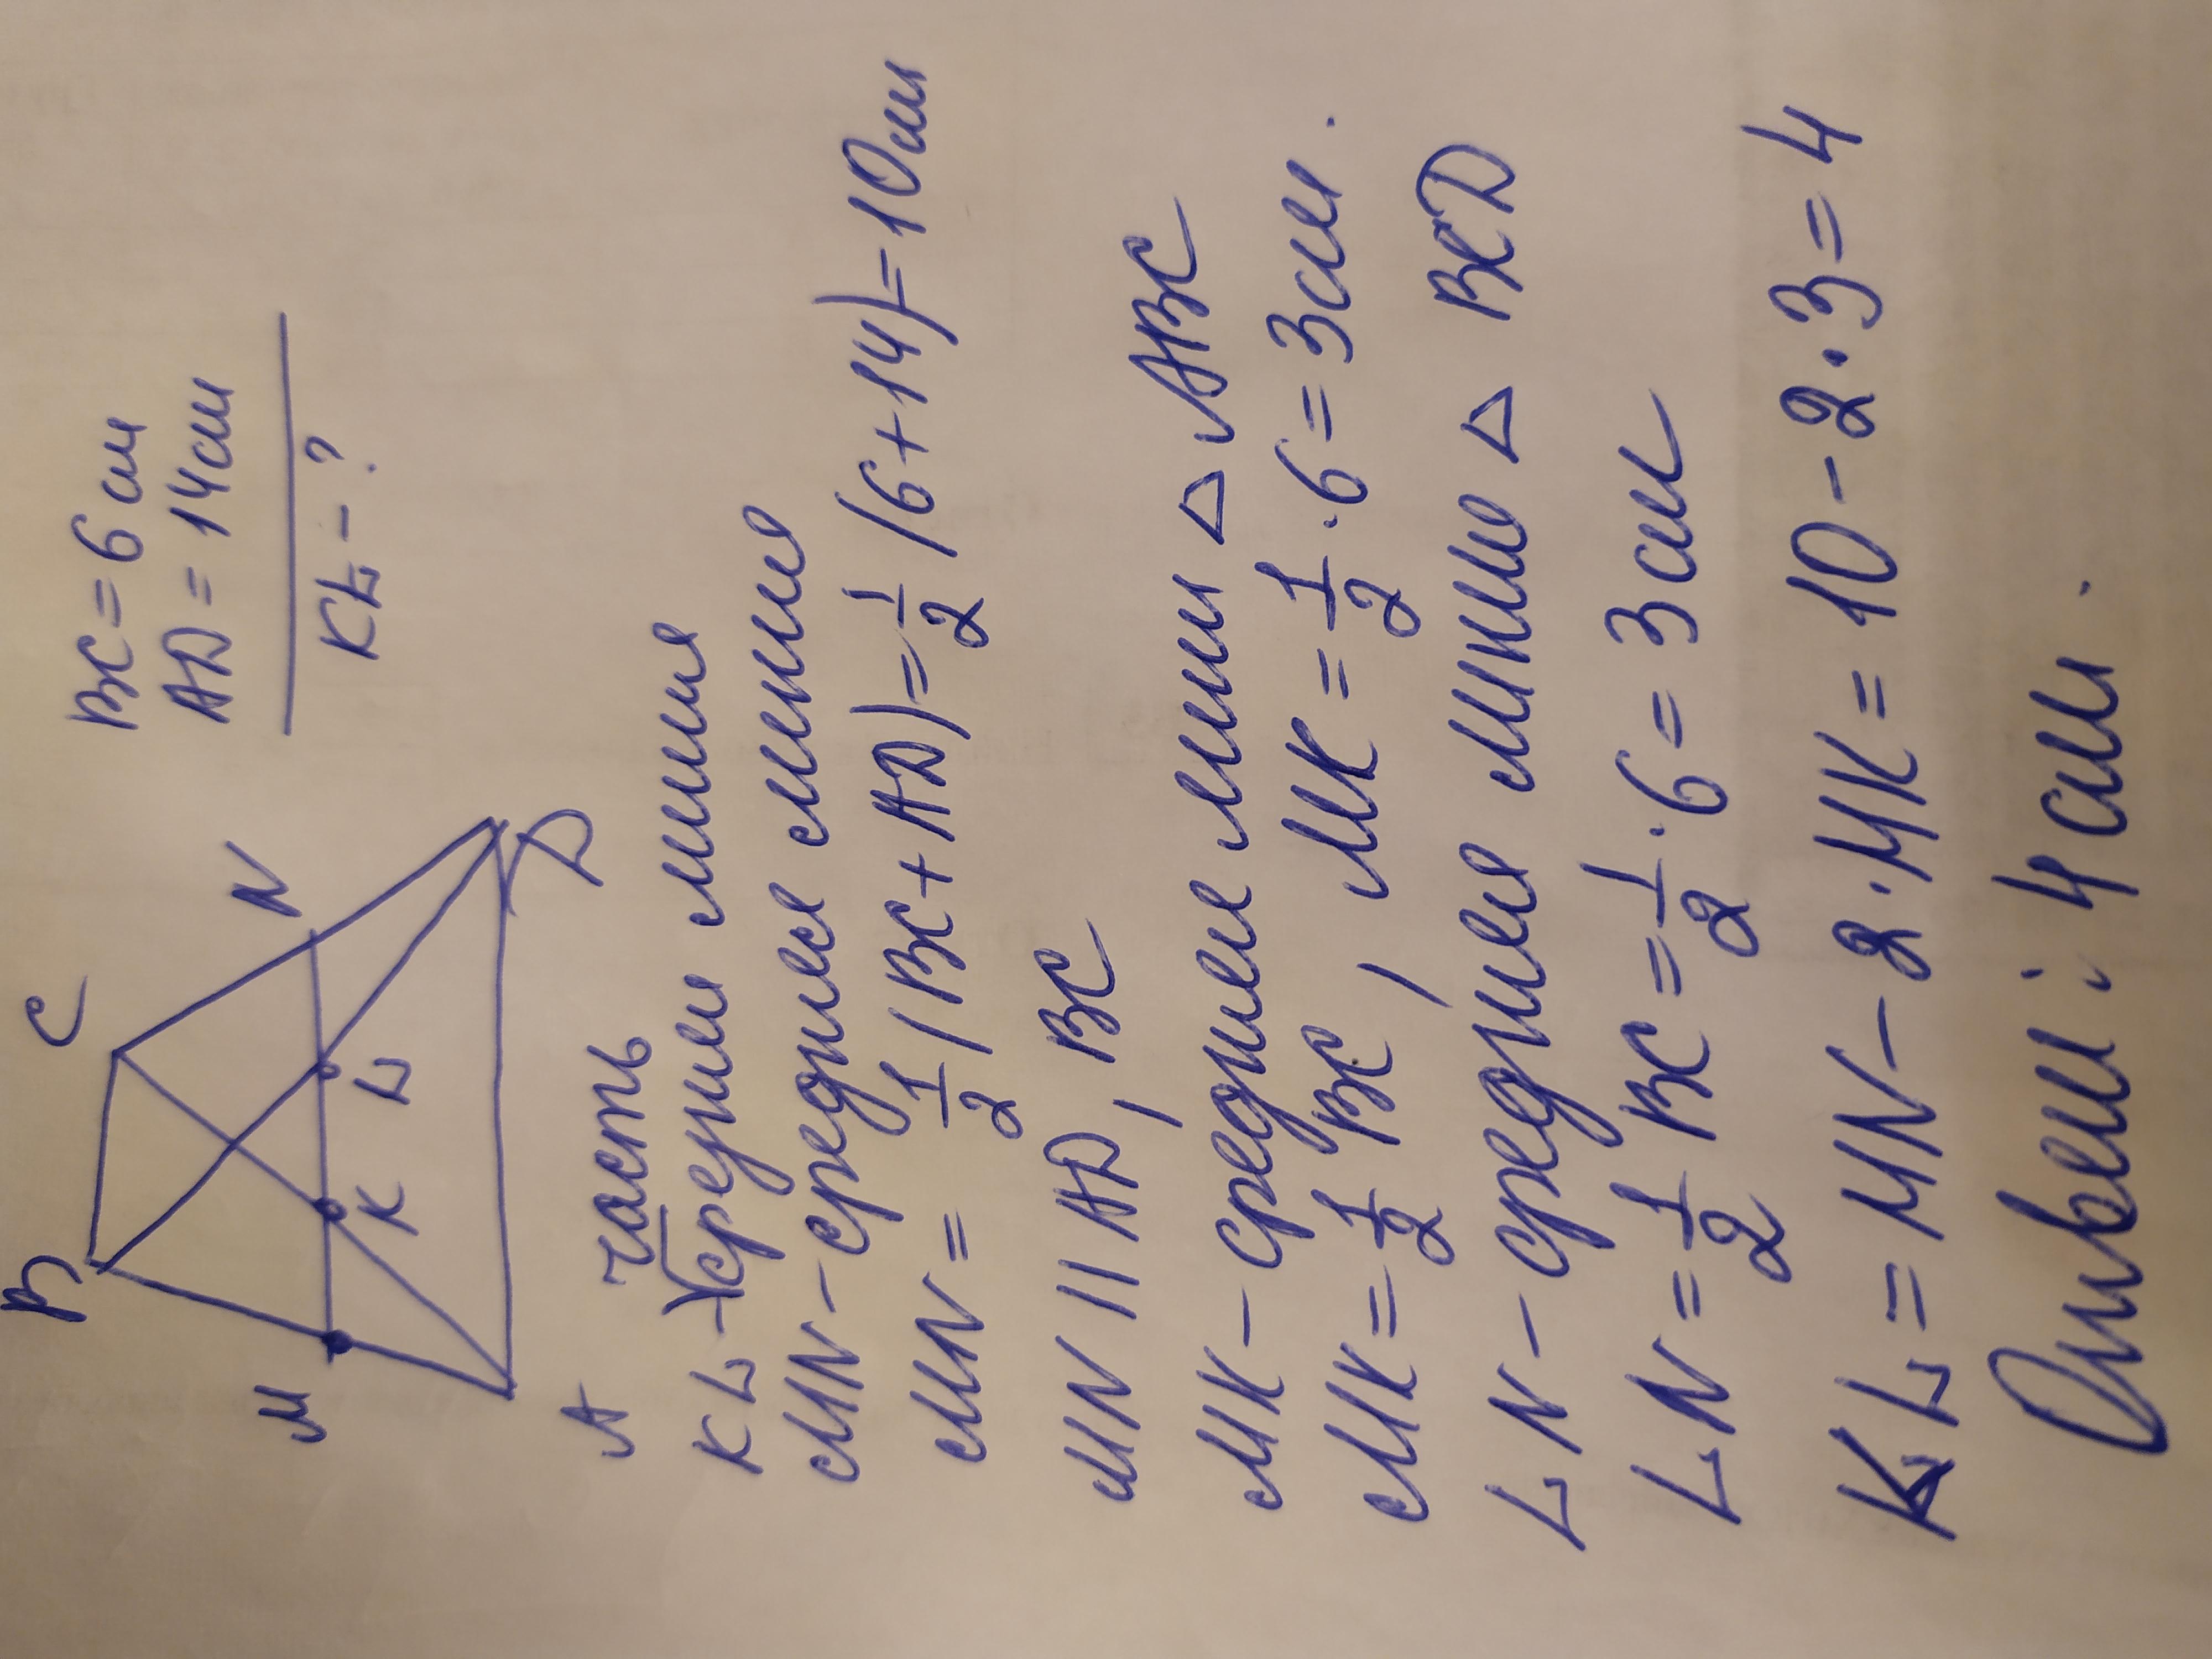 BC = 6 см
AD = 14 см
KL - ?
B
C
M
N
K
L
A
D
часть
KL - средней линии
MN - средняя линия
MN = 1/2 (BC + AD) = 1/2 (6 + 14) = 10 см
MN || AD, BC
MK - средняя линия △ ABC
MK = 1/2 BC, MK = 1/2 · 6 = 3 см.
LN - средняя линия △ BCD
LN = 1/2 BC = 1/2 · 6 = 3 см
KL = MN - 2 · MK = 10 - 2 · 3 = 4
Ответ: 4 см.